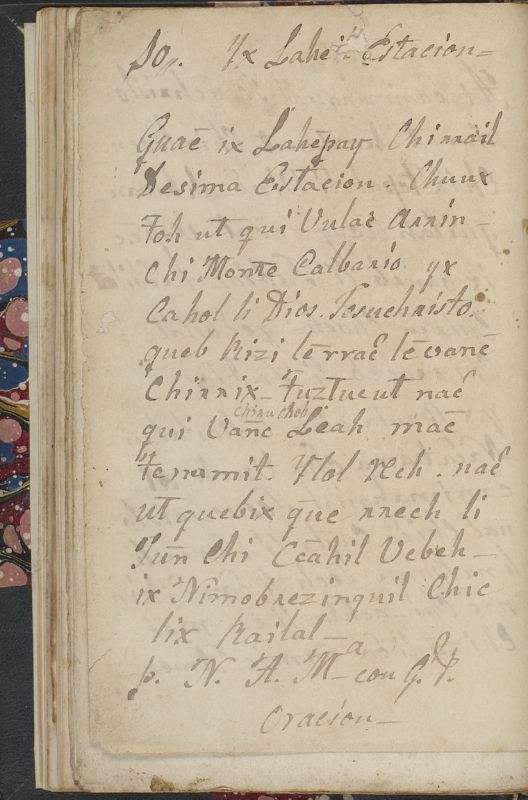 10,, Yx Lahe Estacion=
Guaē ix Lahēpay Chirrail
Desima Estacion. Chuux
Foh ut qui Vulac arrin
Chi Monte Calbario. yx
Cahol li Dios Jesuchristo.
queb Rizi lē rrac̄ lē vanē
Chirrix_ Tuztucut nac̄
chiruchob
qui Vanc Leah maē
Tenamit. Ylol rech. nac̄
ut quebix que rrech li
Jun Chi Ccahil Vebeh_
ix Nimobrezinquil Chic
lix Railal_
p. N. A. Ma_ con G. P.
oracion_